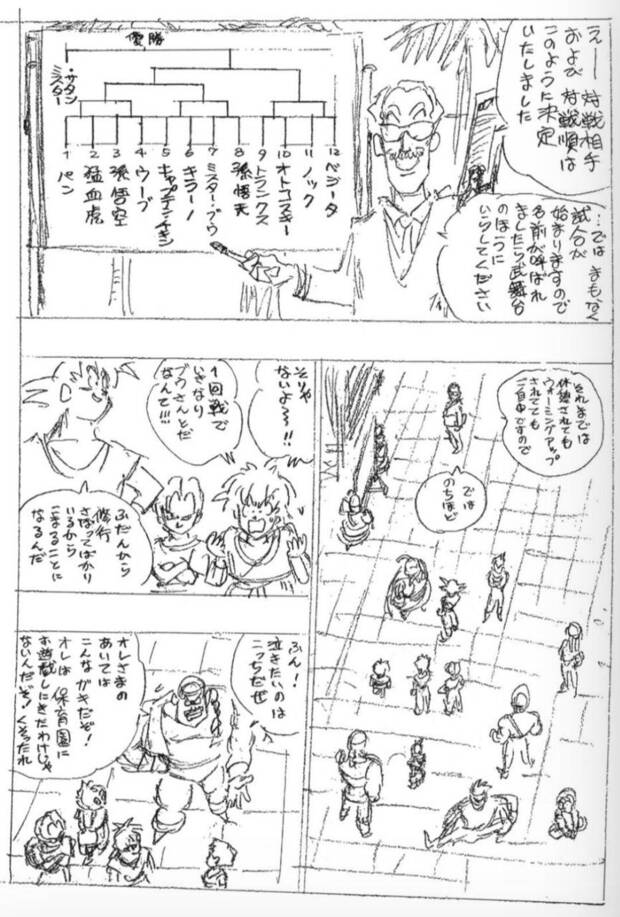 えー 対戦相手
および 対戦順は
このように決定
いたしました
…では まもなく
試合が
始まりますので
名前が呼ばれ
ましたら武舞台
のほうに
いらしてください
優勝
ミスター・サタン
1 パン
2 猛血虎
3 孫悟空
4 ウーブ
5 キャプテン・チキン
6 キラーノ
7 ミスター・ブウ
8 孫悟天
9 トランクス
10 オトコスキー
11 ノック
12 ベジータ
それまでは
休憩されても
ウォーミングアップ
されてても
ご自由ですので
では
のちほど
そりゃ
ないよ〜〜!!
1回戦で
いきなり
ブウさんとだ
なんて!!!
ふだんから
修行
さぼってばかり
いるから
こまることに
なるんだ
ふん!
泣きたいのは
こっちだぜ
オレさまの
あいては
こんなガキだぞ!
オレは 保育園に
お遊戯しにきたわけじゃ
ないんだぞ! くそったれ